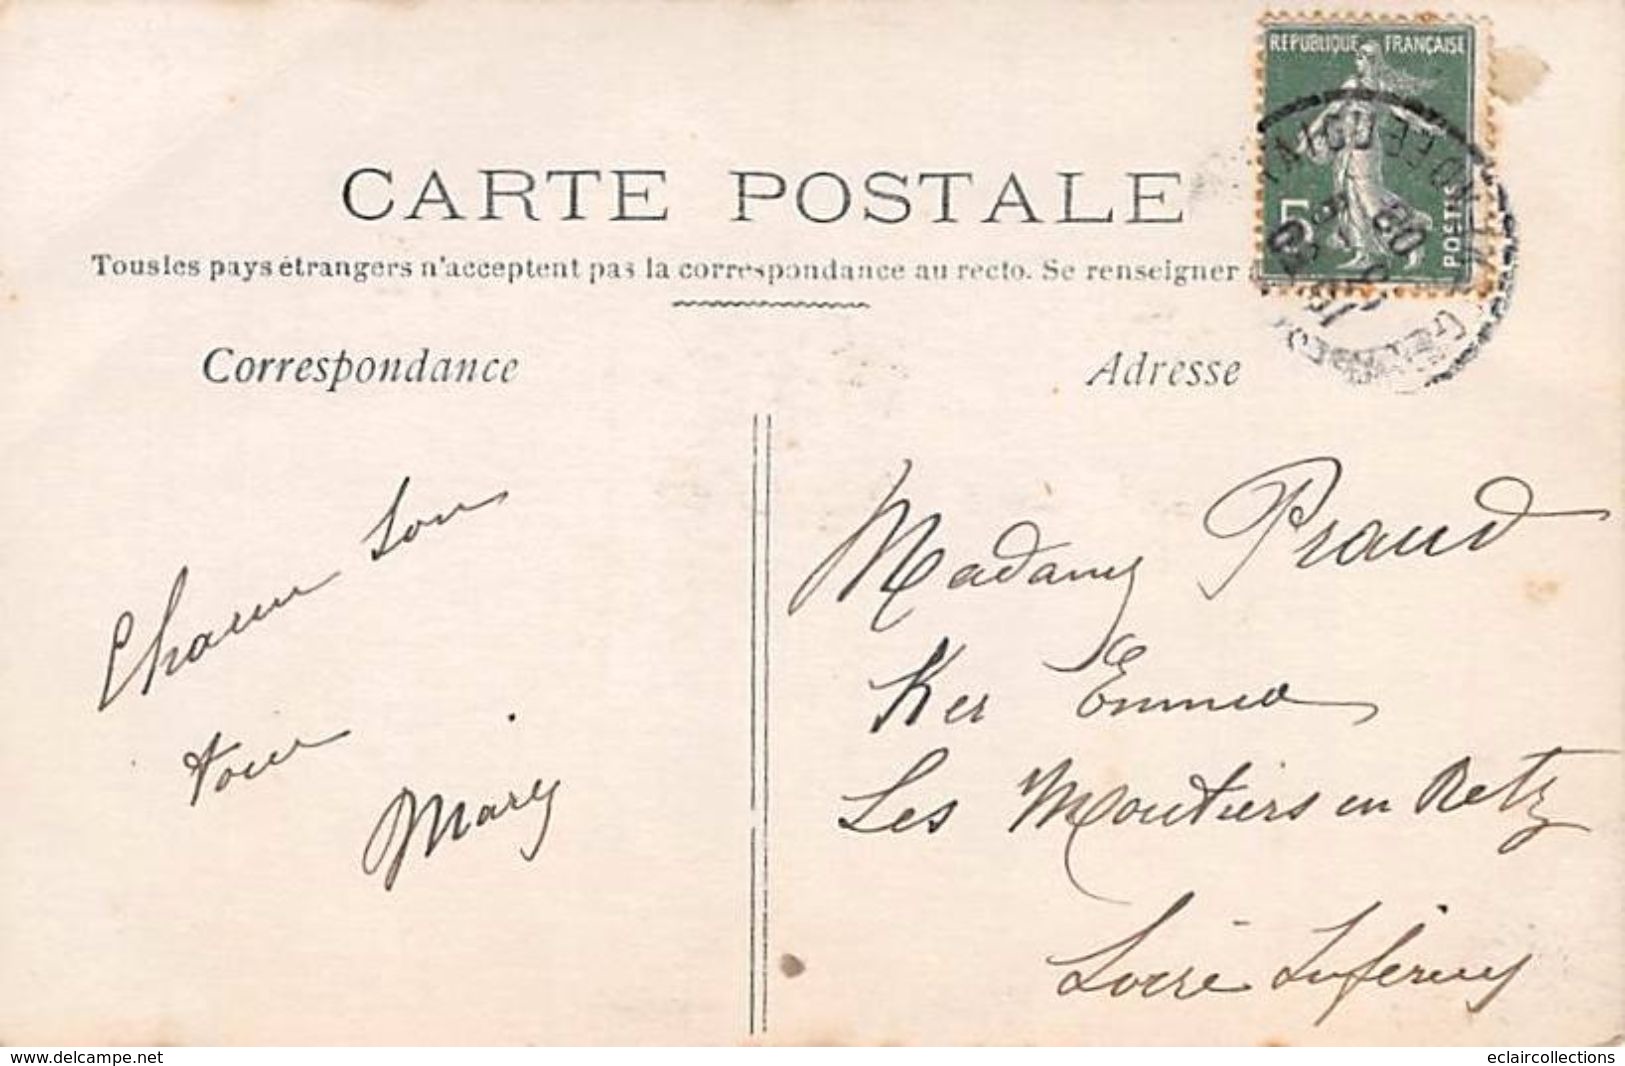 REPUBLIQUE FRANÇAISE
5
POSTES
CARTE POSTALE
Tous les pays étrangers n'acceptent pas la correspondance au recto. Se renseigner à
Correspondance
Adresse
Chacun son
tour
Mary
Madame Praud
Ker Emma
Les Moutiers en Retz
Loire Inférieure
www.delcampe.net
eclaircollections